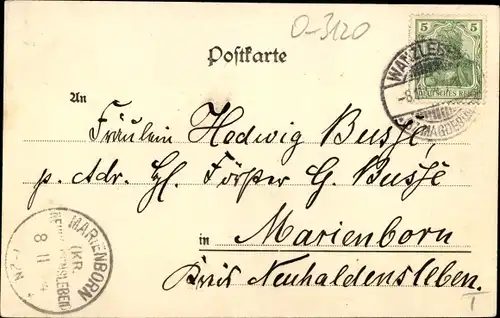 O-3120
5 5
DEUTSCHES REICH
WANZLEBEN
MAGDEBURG
Postkarte
An
Fräulein Hedwig Busse,
p. Adr. Hl. Förster G. Busse
in Marienborn
Kreis Neuhaldensleben.
MARIENBORN
(KR.
NEUHALDENSLEBEN
8 11
T